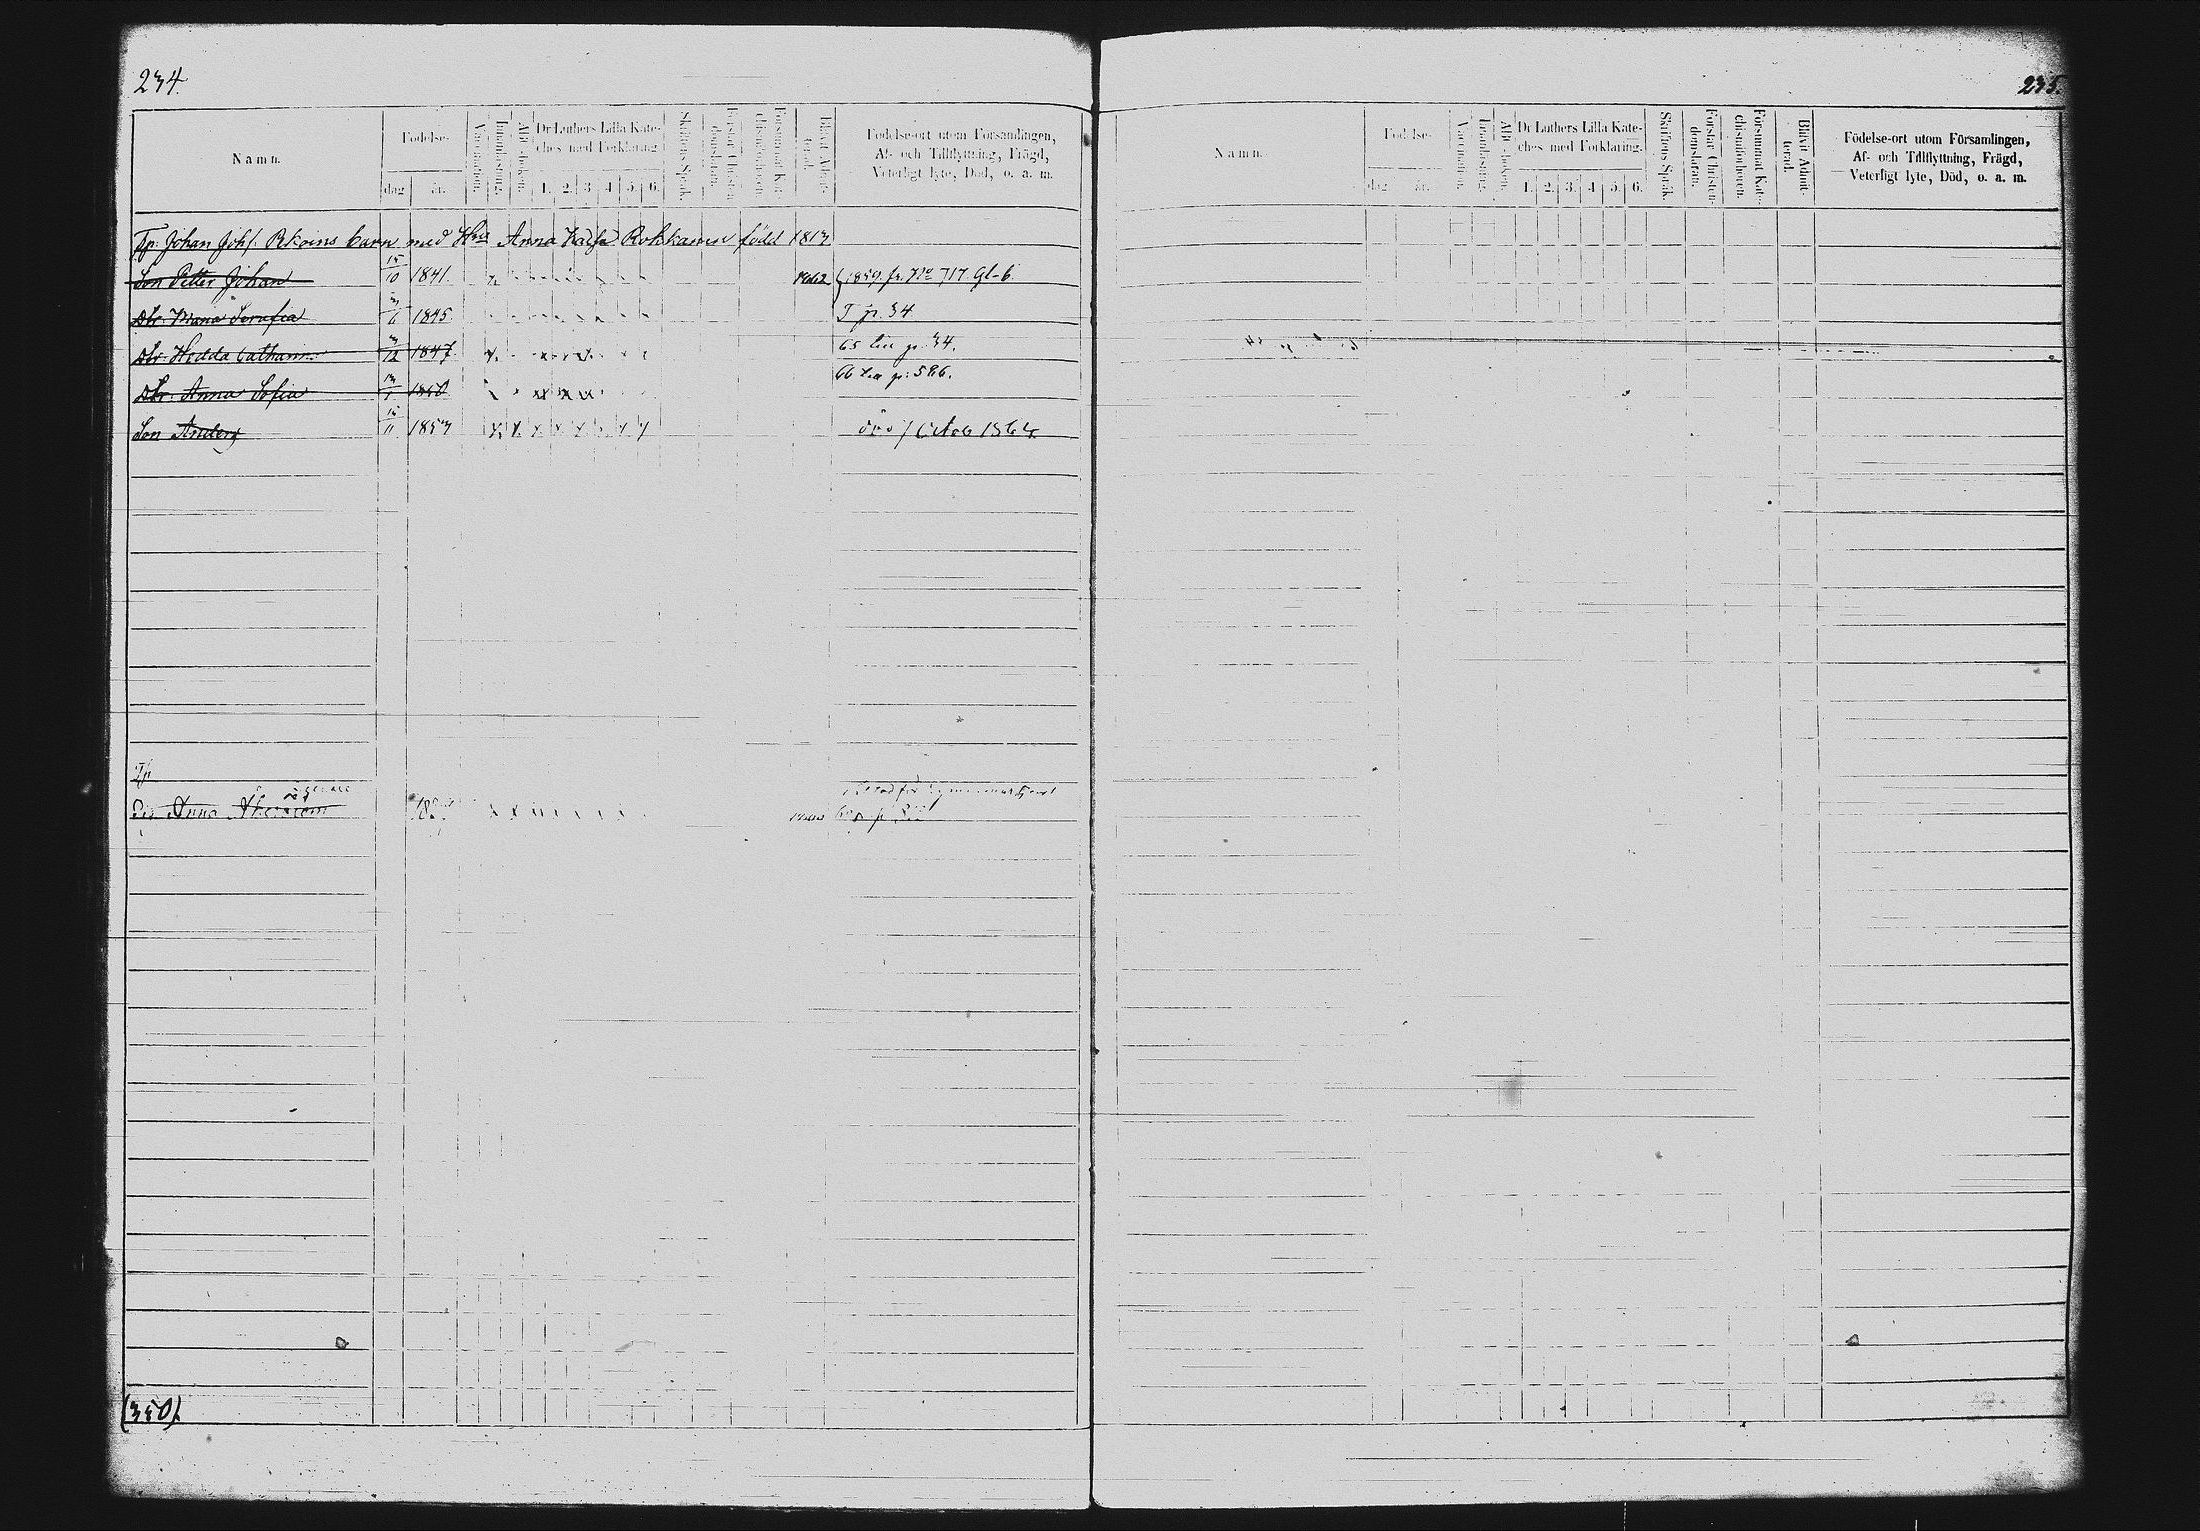 234.
Namn.
Födelse-
dag
år.
Vaccination.
Innanläsning.
ABC-boken.
Dr Luthers Lilla Kate-
ches med Förklaring.
1. 2. 3. 4. 5. 6.
Skriftens Språk.
Förstår Christen-
domsläran.
Försummat Kat-
chismiförhören.
Blifvit Admit-
terad.
Födelse-ort utom Församlingen,
Af- och Tillflyttning, Frägd,
Veterligt lyte, Död, o. a. m.
Tp. Johan Johs. barn med Hru Anna Kaisa född 1813
Son Petter Johan 15/10 1841. 1862 1859. fr. No 717. Gl-b.
Dtr. Maria Serafia 3/6 1845. T p. 34
Dtr. Hedda Catharina 3/12 1847. 65 p. 34.
Dtr. Anna Sofia 1850 66 p: 586.
Son Anders 15/11 1853 Octob 1864.
Tp
Anna
(350).
235.
Namn.
Födelse-
dag
år.
Vaccination.
Innanläsning.
ABC-boken.
Dr Luthers Lilla Kate-
ches med Förklaring.
1. 2. 3. 4. 5. 6.
Skriftens Språk.
Förstår Christen-
domsläran.
Försummat Kate-
chismiförhören.
Blifvit Admit-
terad.
Födelse-ort utom Församlingen,
Af- och Tillflyttning, Frägd,
Veterligt lyte, Död, o. a. m.